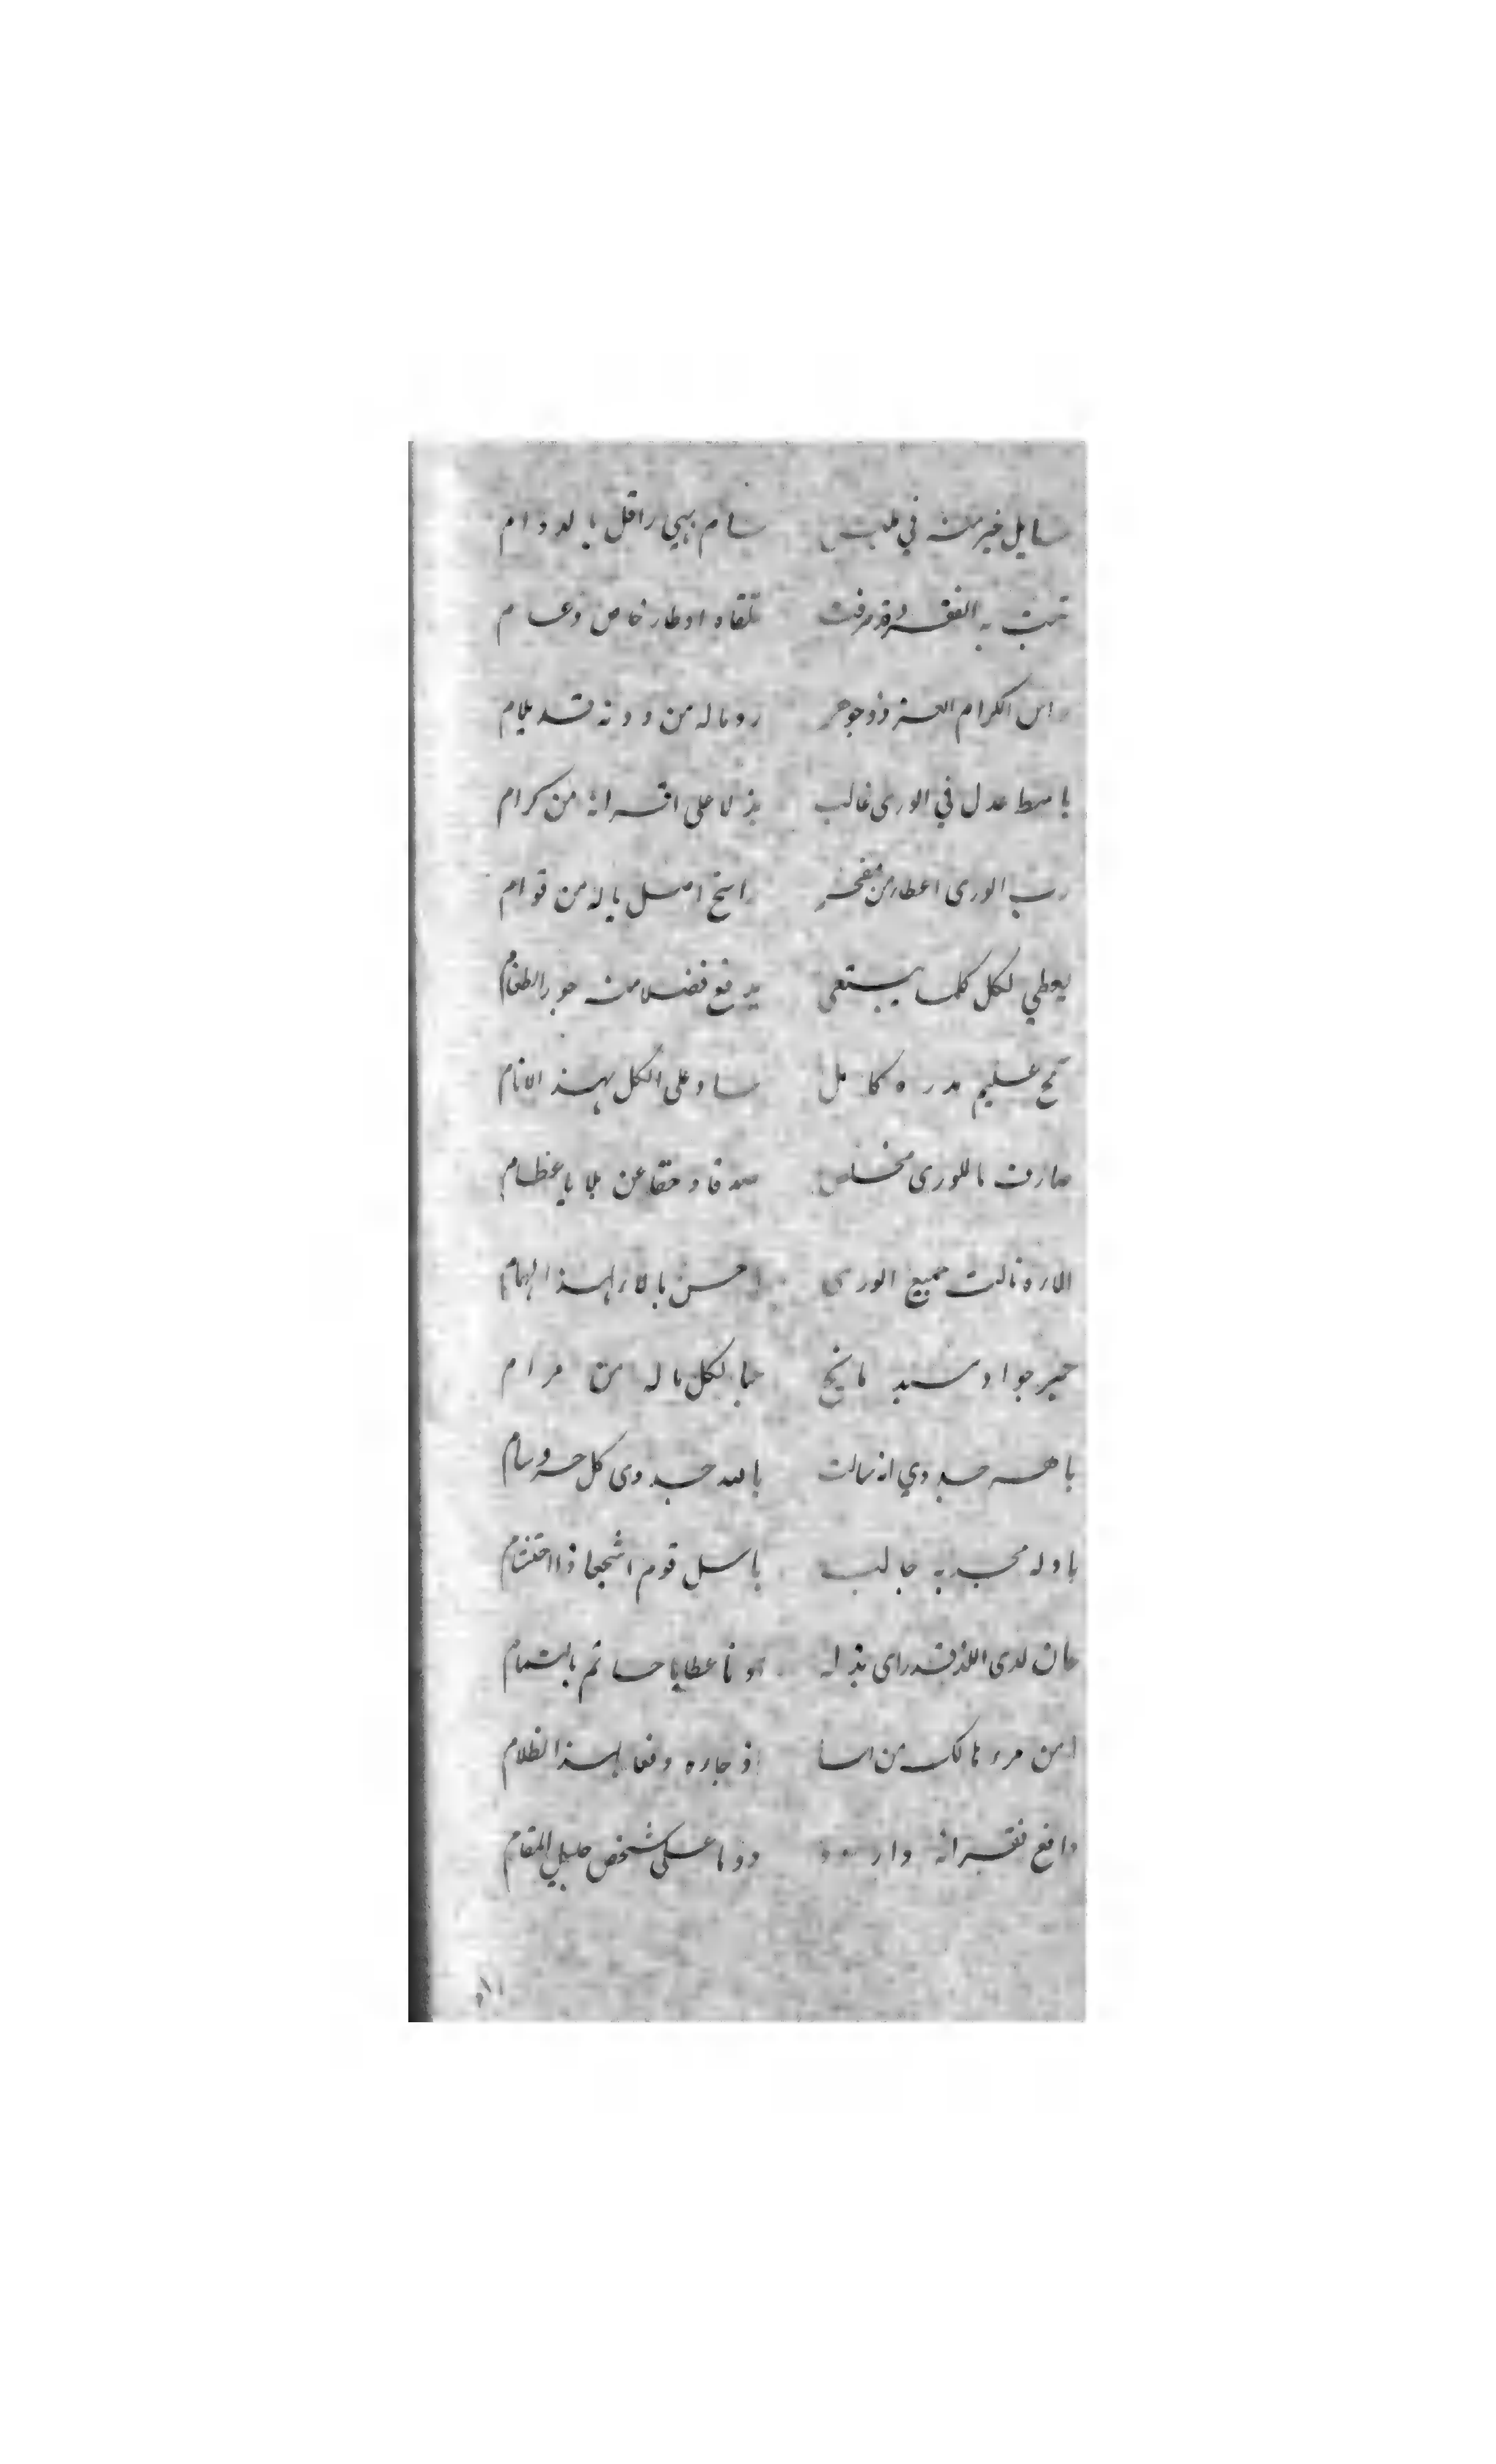 سايل خير منه في ملبس سام بهي رافل بالدوام
تمت به الفقر وقد صرفت تلقاه اوطار خاص وعام
راس الكرام العز ذو جوهر روما له من دونه قد يلام
باسط عدل في الورى غالب بذلا على اقرانه من كرام
رب الورى اعطاه من مفخر راسخ اصل ياله من قوام
يعطي لكل كلما يبتغى يدفع فضلا منه جور الطغام
سمح عليم مدره كامل ساد على الكل بهذ الانام
صارف ما للورى مخلص صدقا وحقا عن بلايا عظام
الاره نالت جميع الورى احسن بالاء لهذا الهمام
حبر جواد سيد مانح حبا لكل ماله من مرام
باهر جدوي اذ سالت بالله جدوى كل حر وسام
باوله مجد به جالب باسل قوم اشجعا ذا احتشام
حان لدى اللذ قد راى بذله هونا عطايا حاتم بالتمام
امن مرء هالك من اسا اذ جاره دفعا لهذا الظلام
دافع فقر انه دوما على شخص جليل المقام